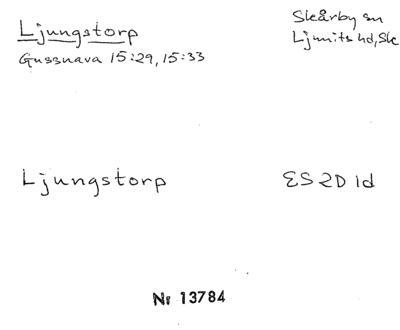 Ljungstorp
Gussnava 15:29, 15:33
Skårby sn
Ljunits hd, Sk
Ljungstorp
ES 2D 1d
Nr 13784